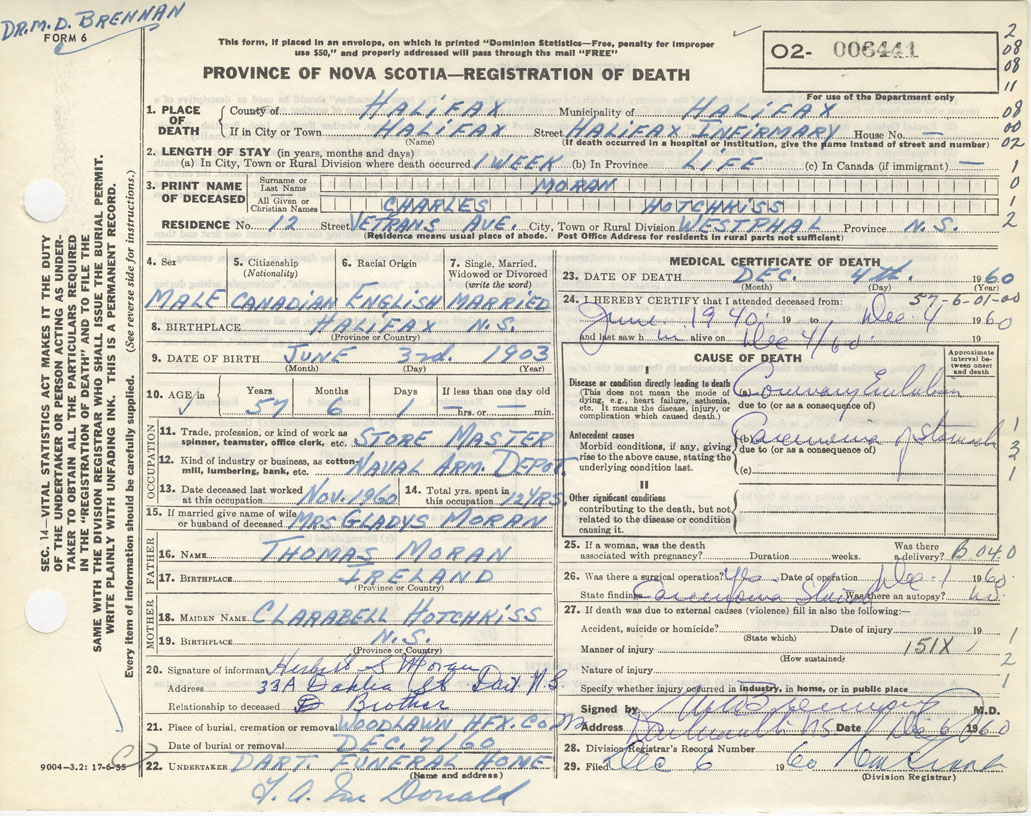 DR. M. D. BRENNAN
FORM 6
This form, if placed in an envelope, on which is printed "Dominion Statistics—Free, penalty for improper
use $50," and properly addressed will pass through the mail "FREE"
PROVINCE OF NOVA SCOTIA—REGISTRATION OF DEATH
02- 006441
For use of the Department only
2
08
08
11
08
00
02
1
0
1
2
1. PLACE OF DEATH County of HALIFAX Municipality of HALIFAX
If in City or Town HALIFAX Street HALIFAX INFIRMARY House No. —
(Name) (If death occurred in a hospital or institution, give the name instead of street and number)
2. LENGTH OF STAY (in years, months and days)
(a) In City, Town or Rural Division where death occurred 1 WEEK (b) In Province LIFE (c) In Canada (if immigrant) —
3. PRINT NAME OF DECEASED Surname or Last Name MORAN
All Given or Christian Names CHARLES HOTCHKISS
RESIDENCE No. 12 Street VETRANS AVE. City, Town or Rural Division WESTPHAL Province N.S.
(Residence means usual place of abode. Post Office Address for residents in rural parts not sufficient)
SEC. 14—VITAL STATISTICS ACT MAKES IT THE DUTY
OF THE UNDERTAKER OR PERSON ACTING AS UNDER-
TAKER TO OBTAIN ALL THE PARTICULARS REQUIRED
IN THE "REGISTRATION OF DEATH" AND TO FILE THE
SAME WITH THE DIVISION REGISTRAR WHO SHALL ISSUE THE BURIAL PERMIT.
WRITE PLAINLY WITH UNFADING INK. THIS IS A PERMANENT RECORD.
Every item of information should be carefully supplied. (See reverse side for instructions.)
4. Sex 5. Citizenship (Nationality) 6. Racial Origin 7. Single, Married, Widowed or Divorced (write the word)
MALE CANADIAN ENGLISH MARRIED
8. BIRTHPLACE HALIFAX N.S.
(Province or Country)
9. DATE OF BIRTH JUNE 3rd. 1903
(Month) (Day) (Year)
10. AGE Years 57 Months 6 Days 1 If less than one day old — hrs. or — min.
OCCUPATION
11. Trade, profession, or kind of work as spinner, teamster, office clerk, etc. STORE MASTER
12. Kind of industry or business, as cotton mill, lumbering, bank, etc. NAVAL ARM. DEPOT
13. Date deceased last worked at this occupation NOV. 1960 14. Total yrs. spent in this occupation 12 YRS.
15. If married give name of wife or husband of deceased MRS GLADYS MORAN
FATHER
16. NAME THOMAS MORAN
17. BIRTHPLACE IRELAND
(Province or Country)
MOTHER
18. MAIDEN NAME CLARABELL HOTCHKISS
19. BIRTHPLACE N.S.
(Province or Country)
20. Signature of informant Herbert S Moran
Address 33A Dahlia St Dart N.S.
Relationship to deceased Brother
21. Place of burial, cremation or removal WOODLAWN HFX. CO.
Date of burial or removal DEC. 7/60
22. UNDERTAKER DART FUNERAL HOME
(Name and address)
9004-3.2: 17-6-55
MEDICAL CERTIFICATE OF DEATH
23. DATE OF DEATH DEC. 4th 1960
(Month) (Day) (Year)
57-6-01-00
24. I HEREBY CERTIFY that I attended deceased from:
June 1940 19 to Dec. 4 1960
and last saw h im alive on Dec 4/60 19
CAUSE OF DEATH
Approximate interval between onset and death
I
Disease or condition directly leading to death
(This does not mean the mode of dying, e.g., heart failure, asthenia, etc. It means the disease, injury, or complication which caused death.)
(a) Coronary Embolism
due to (or as a consequence of)
Antecedent causes
Morbid conditions, if any, giving rise to the above cause, stating the underlying condition last.
(b) Carcinoma of Stomach
due to (or as a consequence of)
(c)
II
Other significant conditions
contributing to the death, but not related to the disease or condition causing it.
25. If a woman, was the death associated with pregnancy? Duration weeks. Was there a delivery? B 04.0
26. Was there a surgical operation? Yes Date of operation Dec. 1 1960
State findings Carcinoma Stomach Was there an autopsy? no.
27. If death was due to external causes (violence) fill in also the following:—
Accident, suicide or homicide? Date of injury 19
(State which)
Manner of injury 151X
(How sustained)
Nature of injury
Specify whether injury occurred in industry, in home, or in public place
Signed by M.D.
Address Dartmouth NS Date Dec 6 1960
28. Division Registrar's Record Number
29. Filed Dec 6 1960
(Division Registrar)